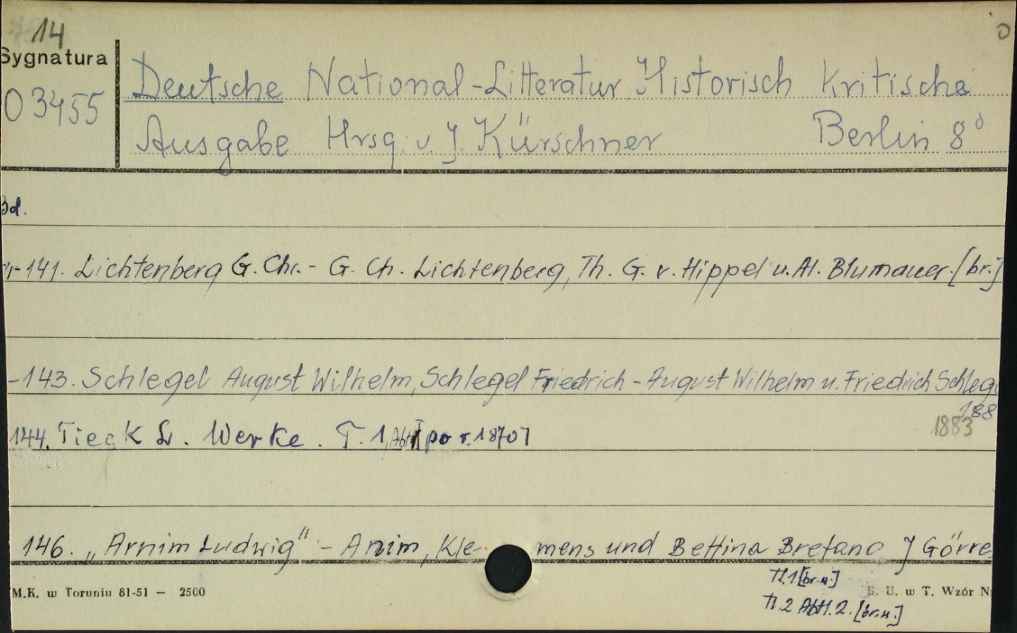 14
Sygnatura
03455
Deutsche National-Litteratur Historisch Kritische
Ausgabe Hrsg. v. J. Kürschner Berlin 8°
Bd.
-141. Lichtenberg G. Chr.- G. Ch. Lichtenberg, Th. G. v. Hippel u. Al. Blumauer. [br.]
-143. Schlegel August Wilhelm, Schlegel Friedrich - August Wilhelm u. Friedrich Schleg
188
144. Tieck L. Werke. T. 1 Abt I [po r. 1870] 1883
146. „Arnim Ludwig" - Arnim, Kle mens und Bettina Bretano J Görre
Tl. 1 [br. u.]
Tl. 2 Abt. 2. [br. u.]
M.K. w Toruniu 81-51 — 2500
B. U. w T. Wzór N